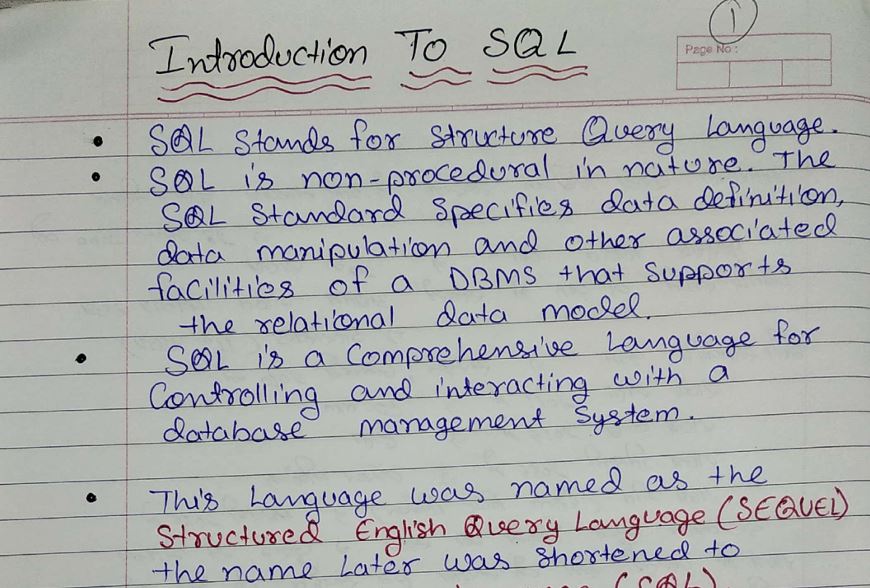 1
Page No :
Introduction To SQL
• SQL Stands for Structure Query Language.
• SQL is non-procedural in nature. The
SQL Standard Specifies data definition,
data manipulation and other associated
facilities of a DBMS that Supports
the relational data model.
• SQL is a Comprehensive Language for
Controlling and interacting with a
database management System.
• This Language was named as the
Structured English Query Language (SEQUEL)
the name Later was Shortened to
(SQL)